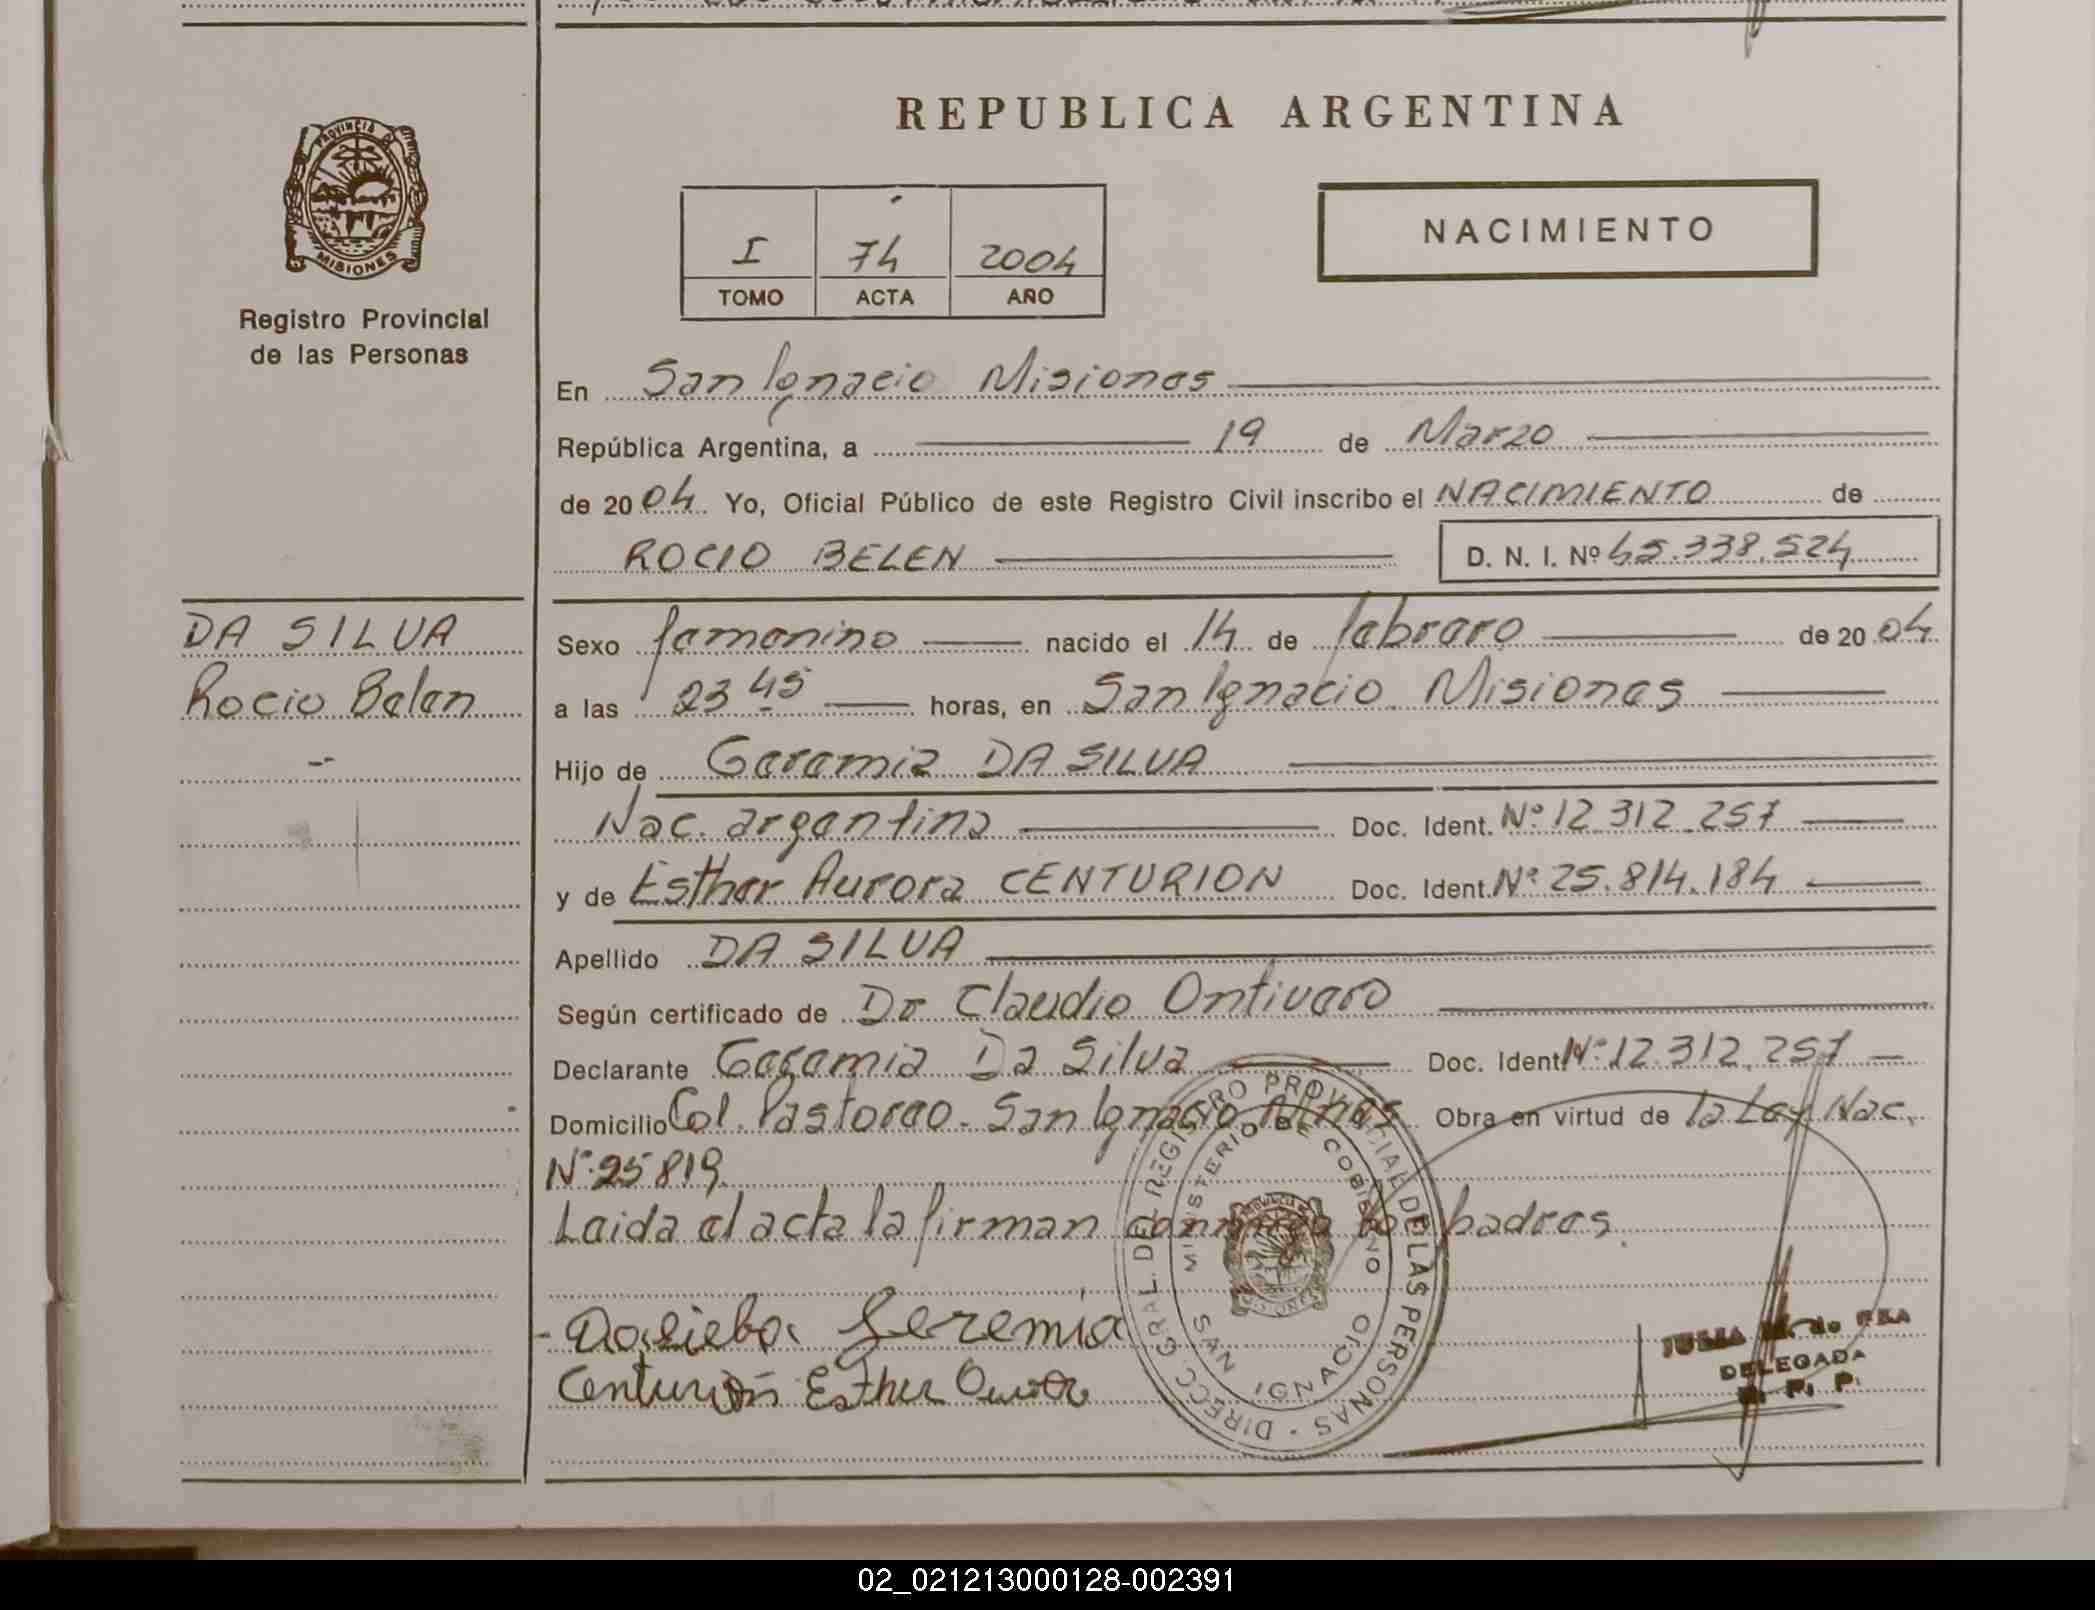 REPUBLICA ARGENTINA
PROVINCIA DE
MISIONES
Registro Provincial
de las Personas
I 74 2004
TOMO ACTA AÑO
NACIMIENTO
En San Ignacio Misiones
República Argentina, a 19 de Marzo
de 2004. Yo, Oficial Público de este Registro Civil inscribo el NACIMIENTO de
ROCIO BELEN D. N. I. Nº 45.338.524
DA SILVA
Rocio Belen
Sexo femenino nacido el 14 de febrero de 2004
a las 23 45 horas, en San Ignacio Misiones
Hijo de Geremia DA SILVA
Nac. argentina Doc. Ident. Nº 12.312.257
y de Esther Aurora CENTURION Doc. Ident. Nº 25.814.184
Apellido DA SILVA
Según certificado de Dr Claudio Ontivero
Declarante Geremia Da Silva Doc. Ident. Nº 12.312.257
Domicilio Col. Pastoreo - San Ignacio Mnes Obra en virtud de la Ley Nac.
Nº 25819.
Leida el acta la firman conmigo los padres.
- Geremia
Centurión Esther
DIRECC. GRAL. DEL REGISTRO PROVINCIAL DE LAS PERSONAS -
MINISTERIO DE GOBIERNO
SAN IGNACIO
JULIA de
DELEGADA
R. P. P.
02_021213000128-002391